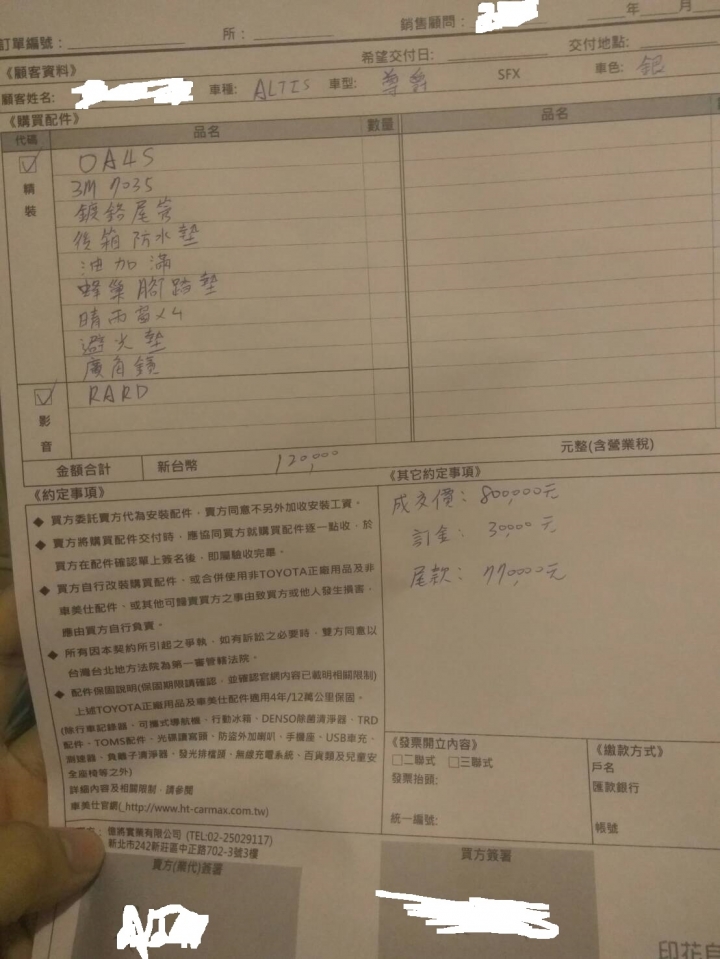 銷售顧問：
年 月
訂單編號： 所：
希望交付日： 交付地點：
《顧客資料》
顧客姓名： 車種： ALTIS 車型： 尊爵 SFX 車色： 銀
《購買配件》
代碼 品名 數量 品名
精裝
OA4S
3M 7035
鍍鉻尾管
後箱防水墊
油加滿
蜂巢腳踏墊
晴雨窗x4
避光墊
廣角鏡
影音
RARD
金額合計 新台幣 120,000 元整(含營業稅)
《約定事項》
◆ 買方委託賣方代為安裝配件，賣方同意不另外加收安裝工資。
◆ 賣方將購買配件交付時，應協同買方就購買配件逐一點收，於
買方在配件確認單上簽名後，即屬驗收完畢。
◆ 買方自行改裝購買配件，或合併使用非TOYOTA正廠用品及非
車美仕配件，或其他可歸責買方之事由致買方或他人發生損害，
應由買方自行負責。
◆ 所有因本契約所引起之爭執，如有訴訟之必要時，雙方同意以
台灣台北地方法院為第一審管轄法院。
◆ 配件保固說明(保固期限請確認，並確認官網內容已載明相關限制)
上述TOYOTA正廠用品及車美仕配件適用4年/12萬公里保固。
(除行車記錄器、可攜式導航機、行動冰箱、DENSO除菌清淨器、TRD
配件、TOMS配件、光碟讀寫頭、防盜外加喇叭、手機座、USB車充、
測速器、負離子清淨器、發光排檔頭、無線充電系統、百貨類及兒童安
全座椅等之外)
詳細內容及相關限制，請參閱
車美仕官網( http://www.ht-carmax.com.tw)
《其它約定事項》
成交價：800,000元
訂金：30,000元
尾款：770,000元
《發票開立內容》
□二聯式 □三聯式
發票抬頭：
統一編號：
《繳款方式》
戶名
匯款銀行
帳號
實業有限公司 (TEL:02-25029117)
新北市242新莊區中正路702-3號3樓
賣方(業代)簽署
買方簽署
印花自